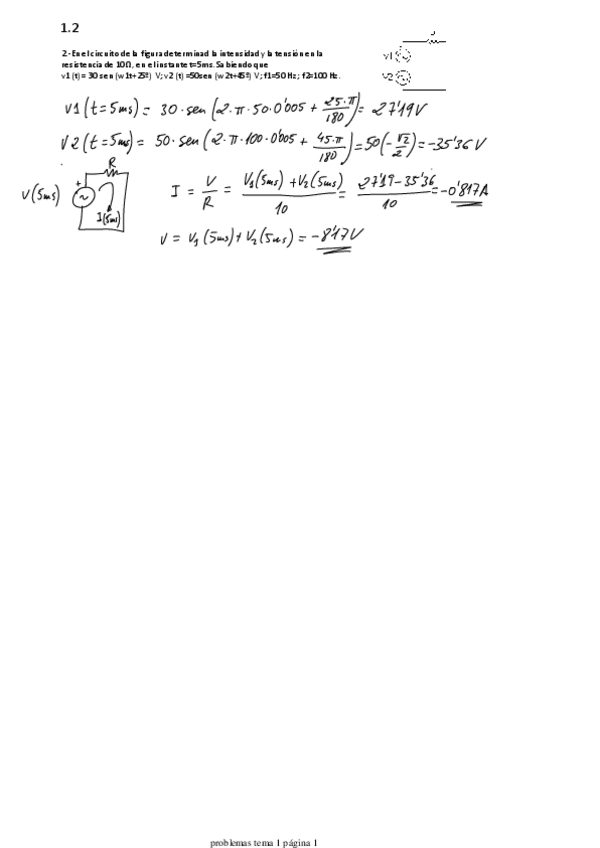 1.2
2.- En el circuito de la figura determinad la intensidad y la tensión en la
resistencia de 10Ω, en el instante t=5ms. Sabiendo que
v1 (t) = 30 sen (w1t+25º) V; v2 (t) =50sen (w2t+45º) V; f1=50 Hz; f2=100 Hz.
v1
v2
V1 (t=5ms) = 30·sen (2·π·50·0'005 + 25·π/180) = 27'19V
V2 (t=5ms) = 50·sen (2·π·100·0'005 + 45·π/180) = 50(-√2/2) = -35'36 V
R
V(5ms)
+
I(5ms)
I = V/R = V1(5ms) + V2(5ms)/10 = 27'19-35'36/10 = -0'817A
V = V1 (5ms) + V2 (5ms) = -8'17V
problemas tema 1 página 1